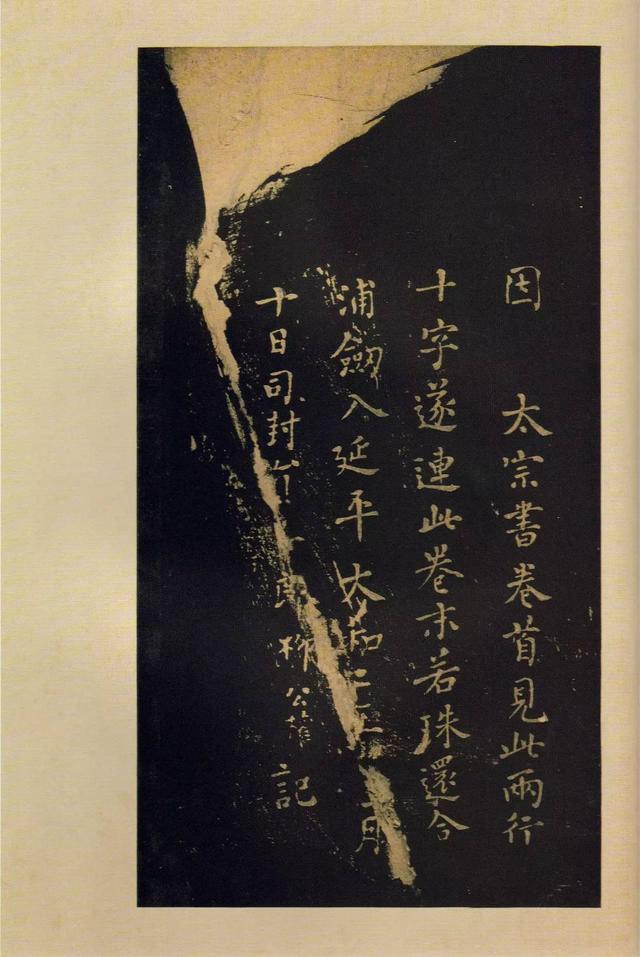 因 太宗書卷首見此兩行
十字遂連此卷末若珠還合
浦劔入延平太和二年三月
十日司封員外郎柳公權記